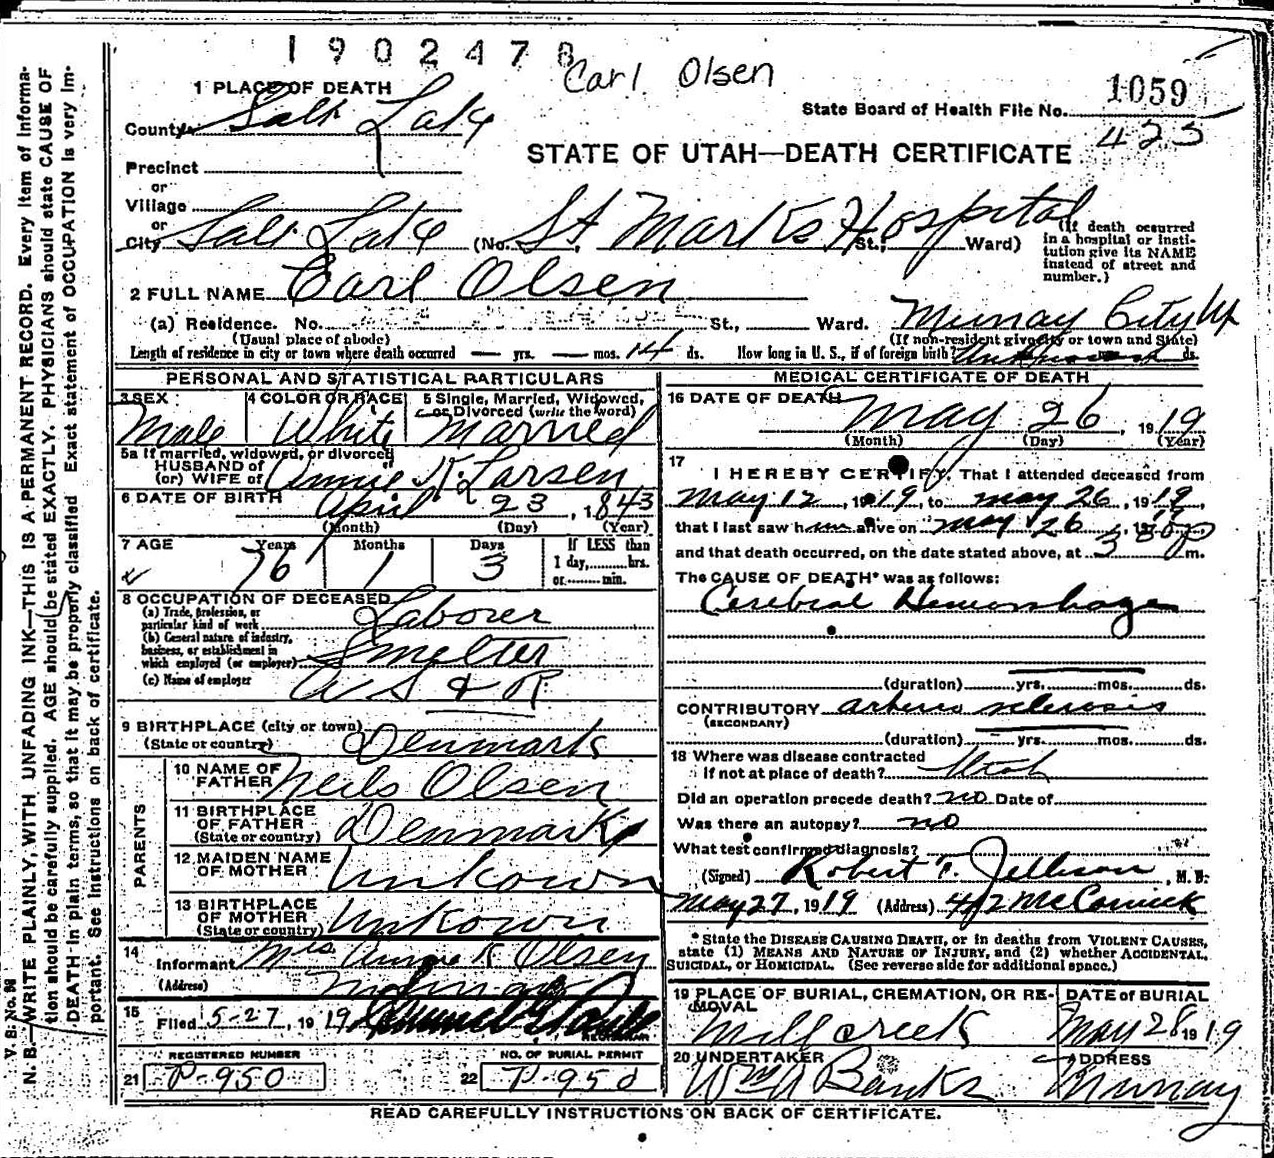 1902478
Carl Olsen
1 PLACE OF DEATH
County Salt Lake
State Board of Health File No. 1059
423
STATE OF UTAH—DEATH CERTIFICATE
Precinct
or
Village
or
City Salt Lake (No. St Marks Hospital St.; Ward)
(If death occurred in a hospital or institution give its NAME instead of street and number.)
2 FULL NAME Carl Olsen
(a) Residence. No. St., Ward. Murray City Ut
(Usual place of abode) (If non-resident give city or town and State)
Length of residence in city or town where death occurred — yrs. — mos. 14 ds. How long in U. S., if of foreign birth? Unknown ds.
PERSONAL AND STATISTICAL PARTICULARS
3 SEX 4 COLOR OR RACE 5 Single, Married, Widowed, or Divorced (write the word)
Male White Married
5a If married, widowed, or divorced
HUSBAND of
(or) WIFE of Annie K. Larsen
6 DATE OF BIRTH April 23, 1843
(Month) (Day) (Year)
7 AGE Years Months Days If LESS than
76 1 3 1 day,........hrs.
or........min.
8 OCCUPATION OF DECEASED
(a) Trade, profession, or particular kind of work Laborer
(b) General nature of industry, business, or establishment in which employed (or employer) Smelter
(c) Name of employer A S & R
9 BIRTHPLACE (city or town)
(State or country) Denmark
PARENTS
10 NAME OF FATHER Neils Olsen
11 BIRTHPLACE OF FATHER (State or country) Denmark
12 MAIDEN NAME OF MOTHER Unkown
13 BIRTHPLACE OF MOTHER (State or country) Unkown
14 Informant Mrs Annie K Olsen
(Address) Murray
15 Filed 5-27, 1919
REGISTRAR
21 REGISTERED NUMBER P-950
22 NO. OF BURIAL PERMIT P-950
MEDICAL CERTIFICATE OF DEATH
16 DATE OF DEATH May 26, 1919
(Month) (Day) (Year)
17 I HEREBY CERTIFY, That I attended deceased from
May 12, 1919, to May 26, 1919,
that I last saw him alive on May 26, 1919,
and that death occurred, on the date stated above, at 3 30 p m.
The CAUSE OF DEATH* was as follows:
Cerebral Hemorrhage
(duration) yrs. mos. ds.
CONTRIBUTORY arterio sclerosis
(SECONDARY)
(duration) yrs. mos. ds.
18 Where was disease contracted
if not at place of death? Utah
Did an operation precede death? no Date of
Was there an autopsy? no
What test confirmed diagnosis?
(Signed) Robert T. Jellison, M. D.
May 27, 1919 (Address) 412 McCornick
* State the DISEASE CAUSING DEATH, or in deaths from VIOLENT CAUSES,
state (1) MEANS AND NATURE OF INJURY, and (2) whether ACCIDENTAL,
SUICIDAL, OR HOMICIDAL. (See reverse side for additional space.)
19 PLACE OF BURIAL, CREMATION, OR REMOVAL DATE of BURIAL
Mill creek May 28 1919
20 UNDERTAKER ADDRESS
Wm A Banks Murray
READ CAREFULLY INSTRUCTIONS ON BACK OF CERTIFICATE.
V. S. No.
N. B.—WRITE PLAINLY, WITH UNFADING INK—THIS IS A PERMANENT RECORD. Every item of informa-
tion should be carefully supplied. AGE should be stated EXACTLY. PHYSICIANS should state CAUSE OF
DEATH in plain terms, so that it may be properly classified. Exact statement of OCCUPATION is very im-
portant. See instructions on back of certificate.